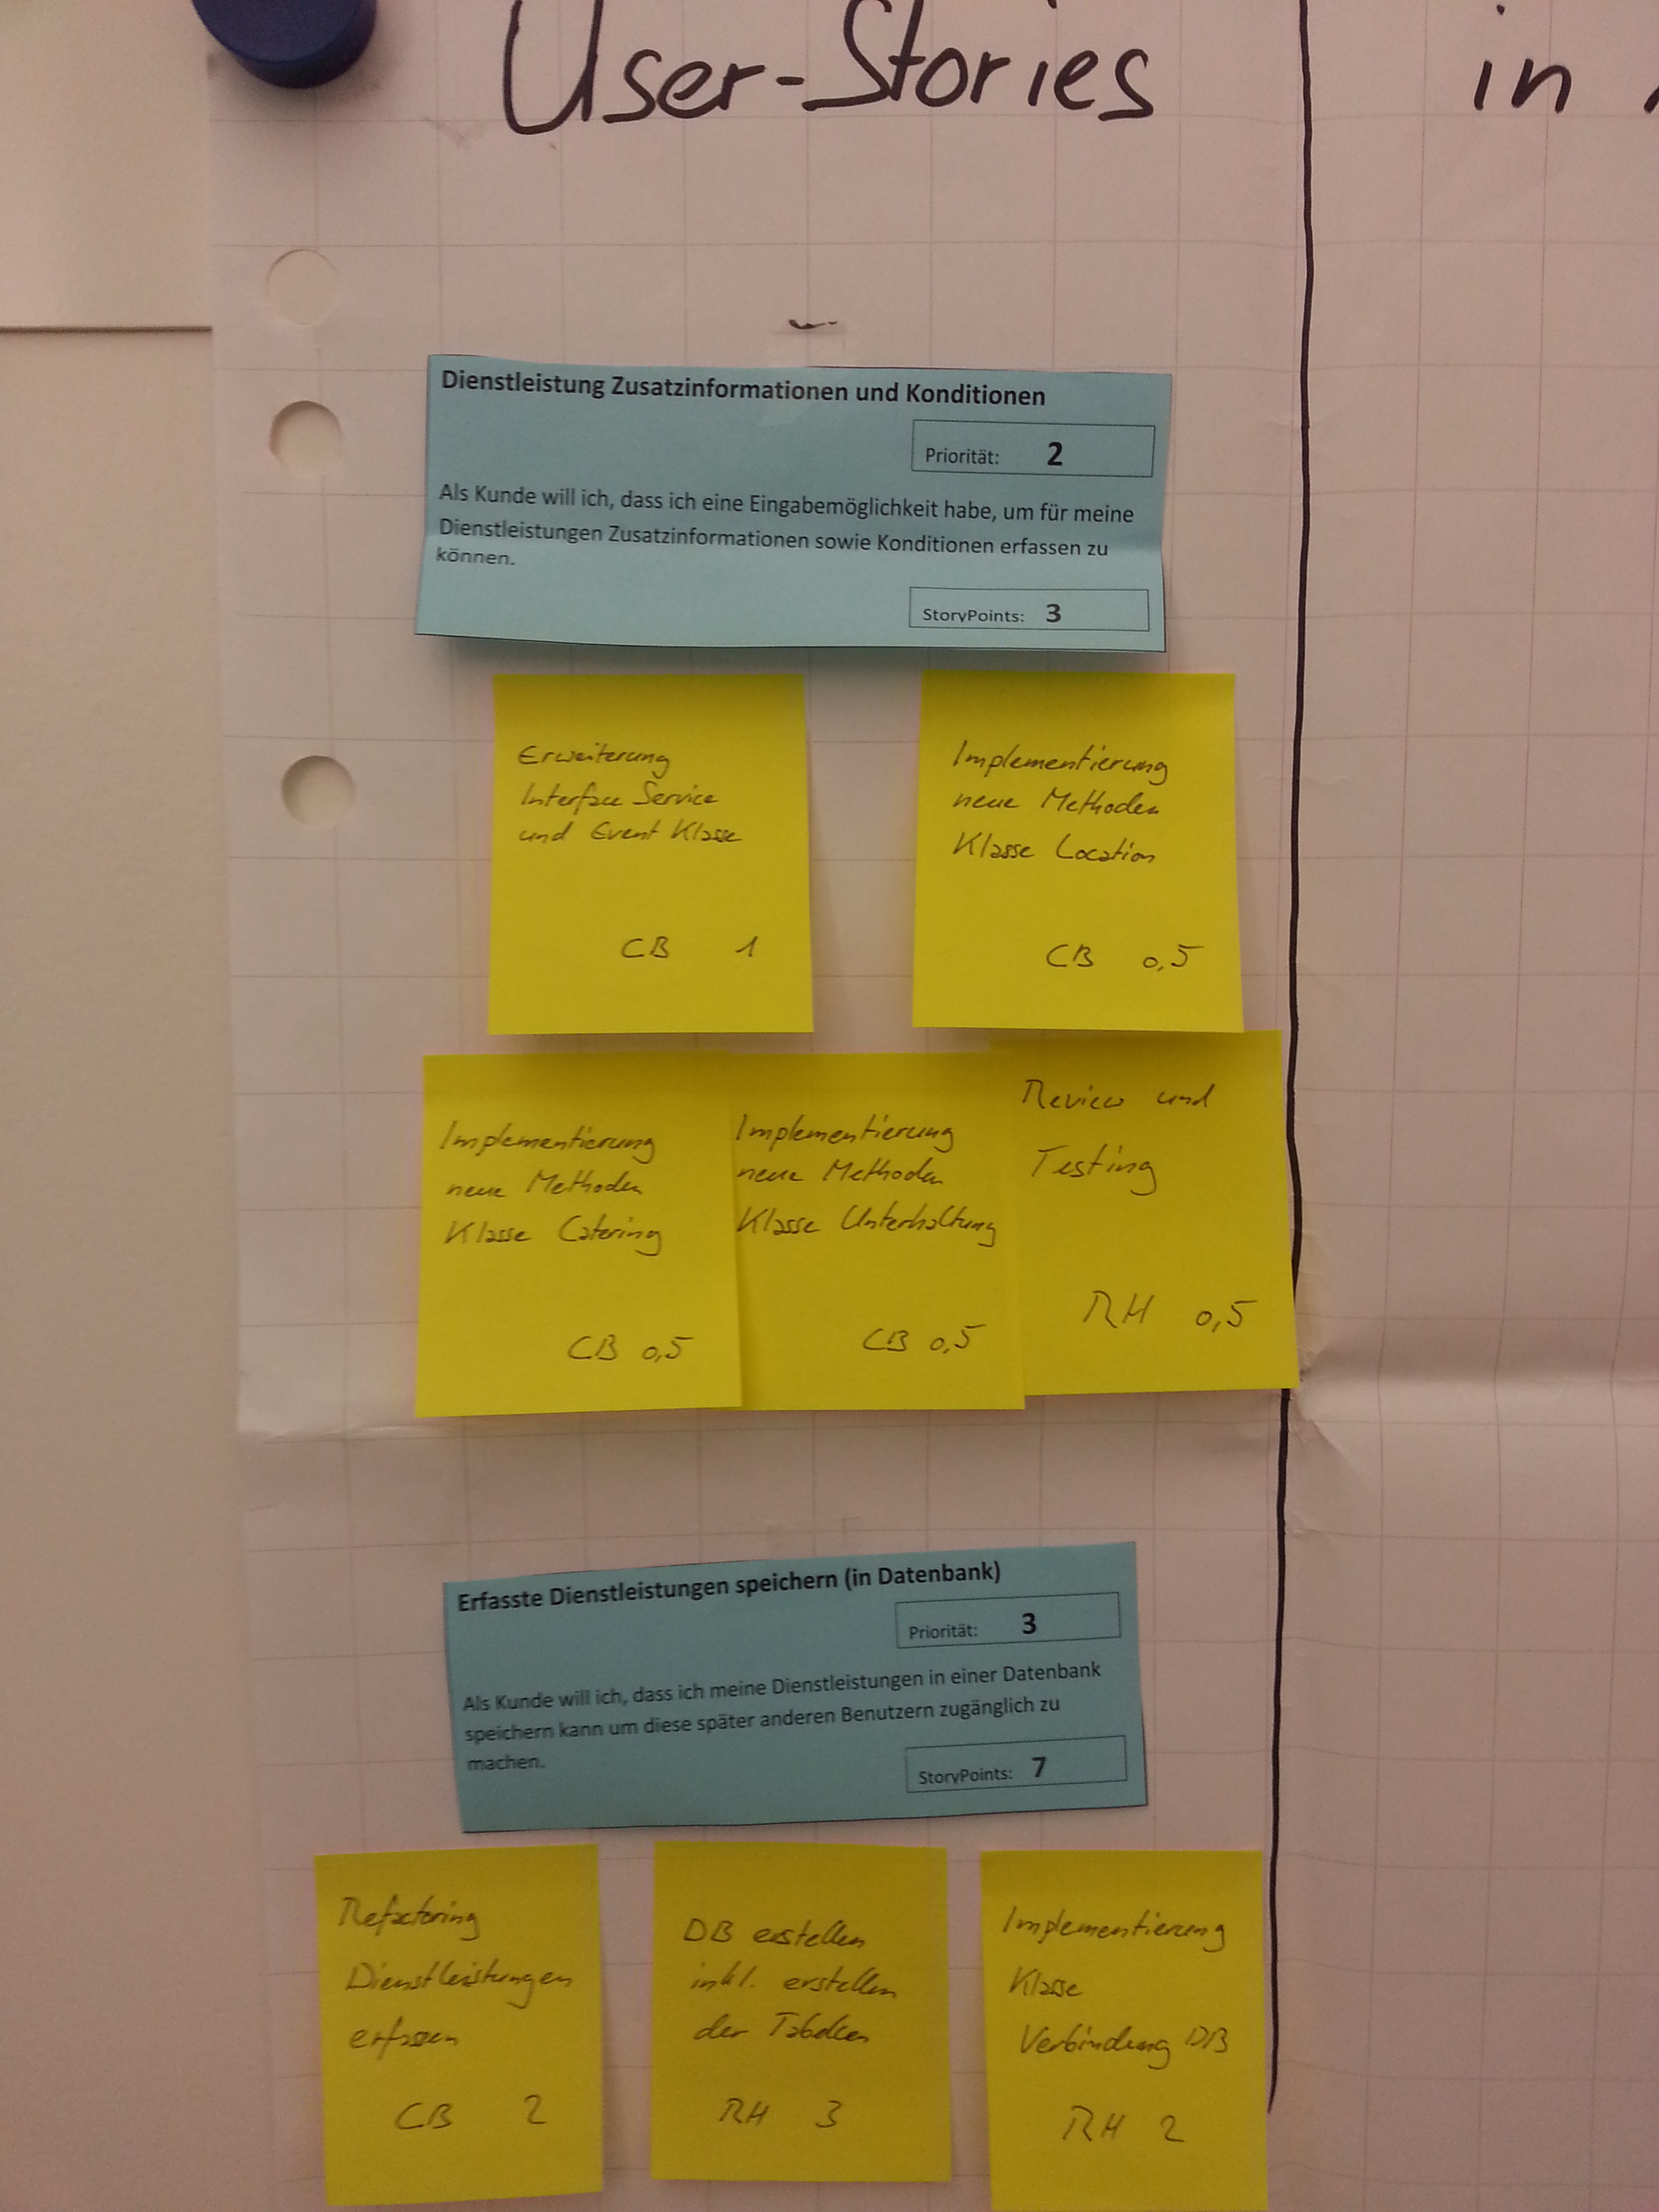 User-Stories
in
Dienstleistung Zusatzinformationen und Konditionen
Priorität: 2
Als Kunde will ich, dass ich eine Eingabemöglichkeit habe, um für meine
Dienstleistungen Zusatzinformationen sowie Konditionen erfassen zu
können.
StoryPoints: 3
Erweiterung
Interface Service
und Event Klasse
CB 1
Implementierung
neue Methoden
Klasse Location
CB 0,5
Implementierung
neue Methoden
Klasse Catering
CB 0,5
Implementierung
neue Methoden
Klasse Unterhaltung
CB 0,5
Review und
Testing
RH 0,5
Erfasste Dienstleistungen speichern (in Datenbank)
Priorität: 3
Als Kunde will ich, dass ich meine Dienstleistungen in einer Datenbank
speichern kann um diese später anderen Benutzern zugänglich zu
machen.
StoryPoints: 7
Refactoring
Dienstleistungen
erfassen
CB 2
DB erstellen
inkl. erstellen
der Tabellen
RH 3
Implementierung
Klasse
Verbindung DB
RH 2